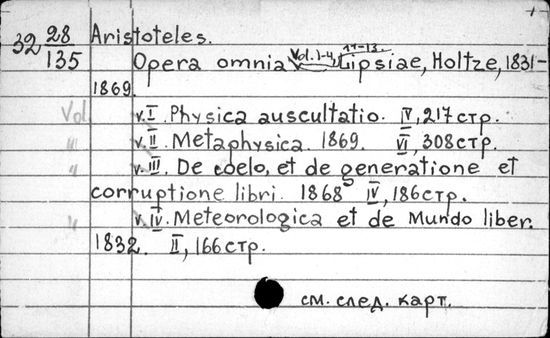 32 28/135 Aristoteles.
Opera omnia Vol. 1-4, 11-13. Lipsiae, Holtze, 1831-
1869.
Vol. v. I. Physica auscultatio. IV, 217 стр.
" v. II. Metaphysica. 1869. VI, 308 стр.
" v. III. De coelo, et de generatione et
corruptione libri. 1868 IV, 186 стр.
" v. IV. Meteorologica et de Mundo liber.
1832. II, 166 стр.
см. след. карт.